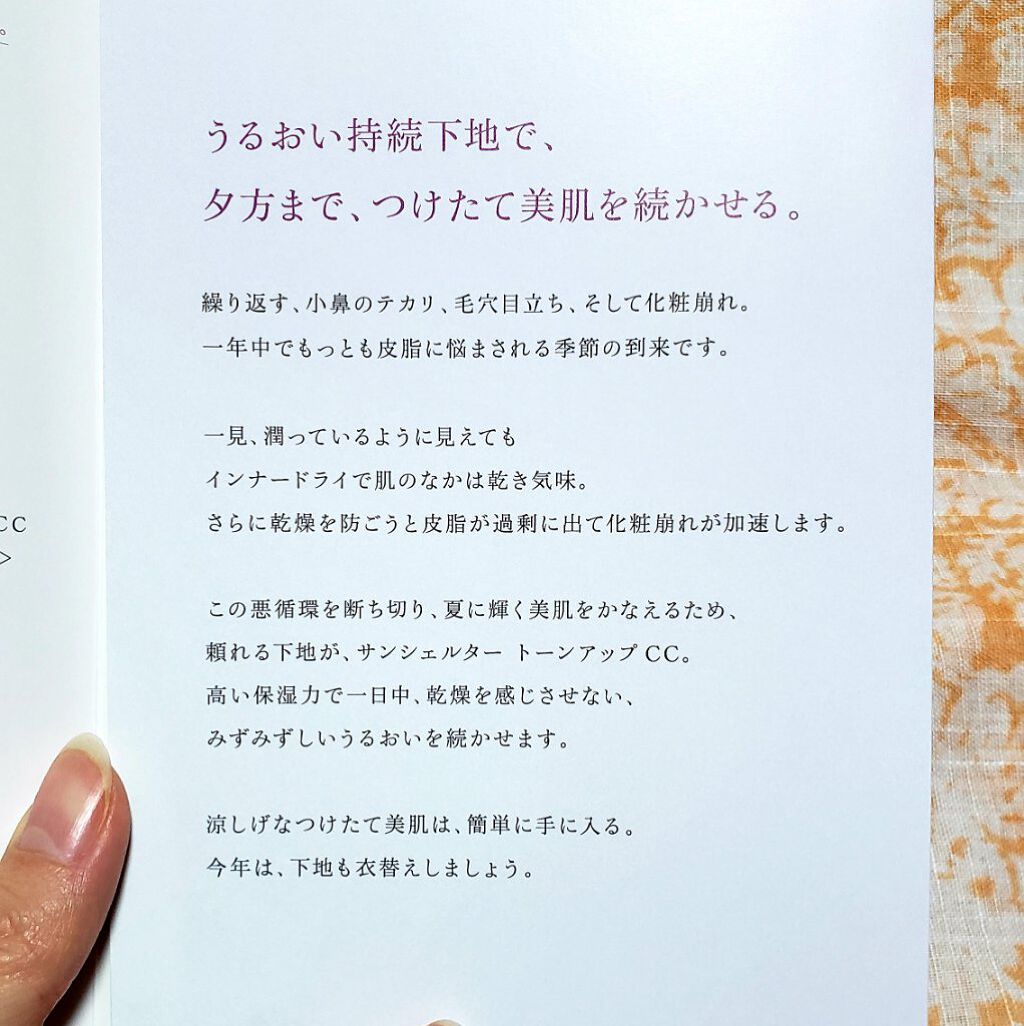 うるおい持続下地で、
夕方まで、つけたて美肌を続かせる。
繰り返す、小鼻のテカリ、毛穴目立ち、そして化粧崩れ。
一年中でもっとも皮脂に悩まされる季節の到来です。
一見、潤っているように見えても
インナードライで肌のなかは乾き気味。
さらに乾燥を防ごうと皮脂が過剰に出て化粧崩れが加速します。
この悪循環を断ち切り、夏に輝く美肌をかなえるため、
頼れる下地が、サンシェルター トーンアップCC。
高い保湿力で一日中、乾燥を感じさせない、
みずみずしいうるおいを続かせます。
涼しげなつけたて美肌は、簡単に手に入る。
今年は、下地も衣替えしましょう。
CC
>